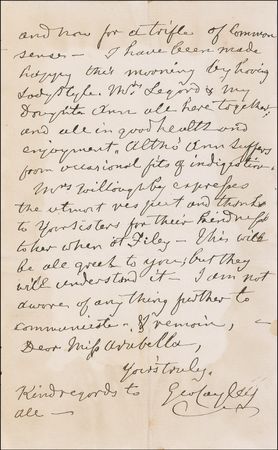 and now for a trifle of common
sense — I have been made
happy this morning by having
Lady Style, Mrs. Legard & my
Daughter Ann all here together,
and all in good health and
enjoyment. Altho' Ann suffers
from occasional fits of indigestion.
Mrs Willoughby expresses
the utmost respect and thanks
to Your Sisters for their kindness
to her when at Filey — This will
be all greek to you; but they
will understand it — I am not
aware of any thing further to
communicate. & remain,
Dear Miss Arabella,
Yours truly,
Kind regards to Geo Cayley
all —